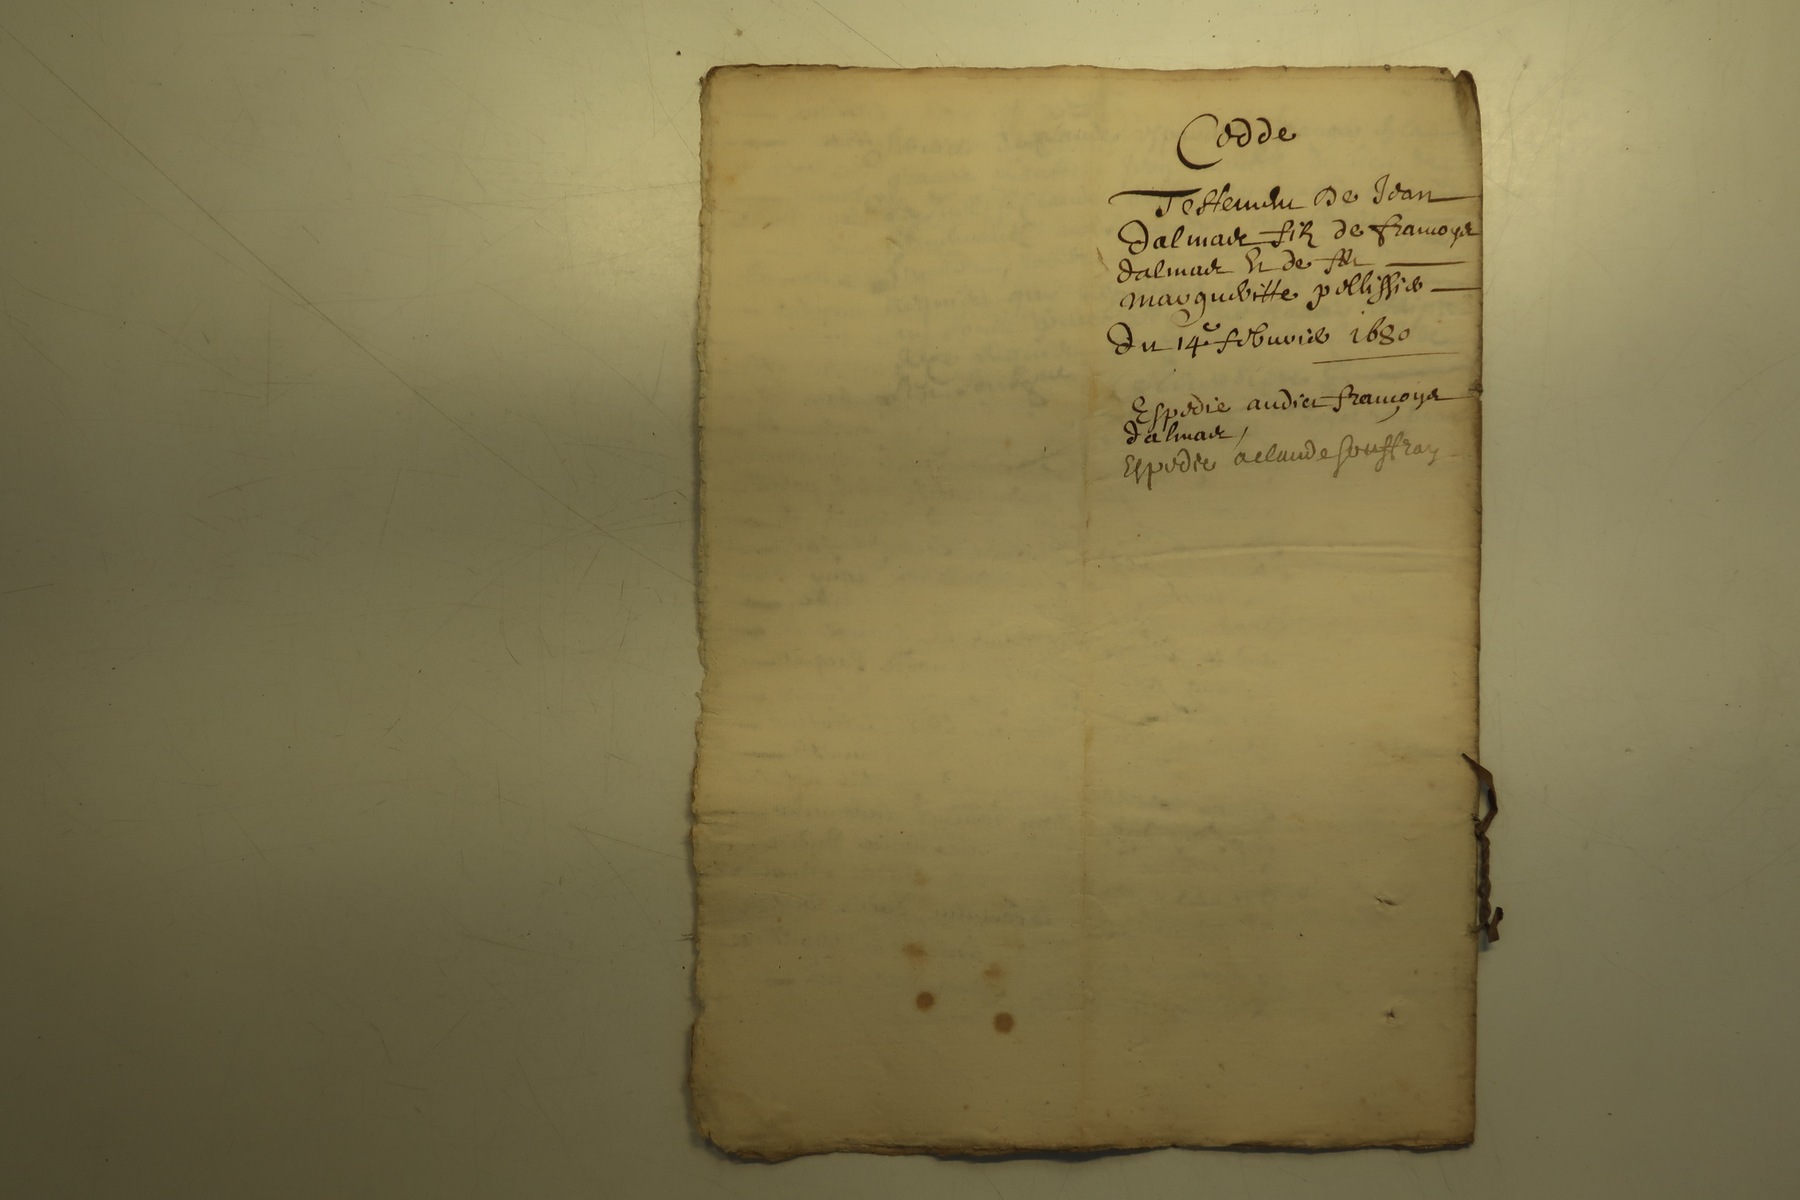 Codde
Testement de Jean
dalmais filz de françoys
dalmais Et de
margueritte pellissier
du 14e febvrier 1680
Espedie audict françoys
dalmais
Espedie a claude